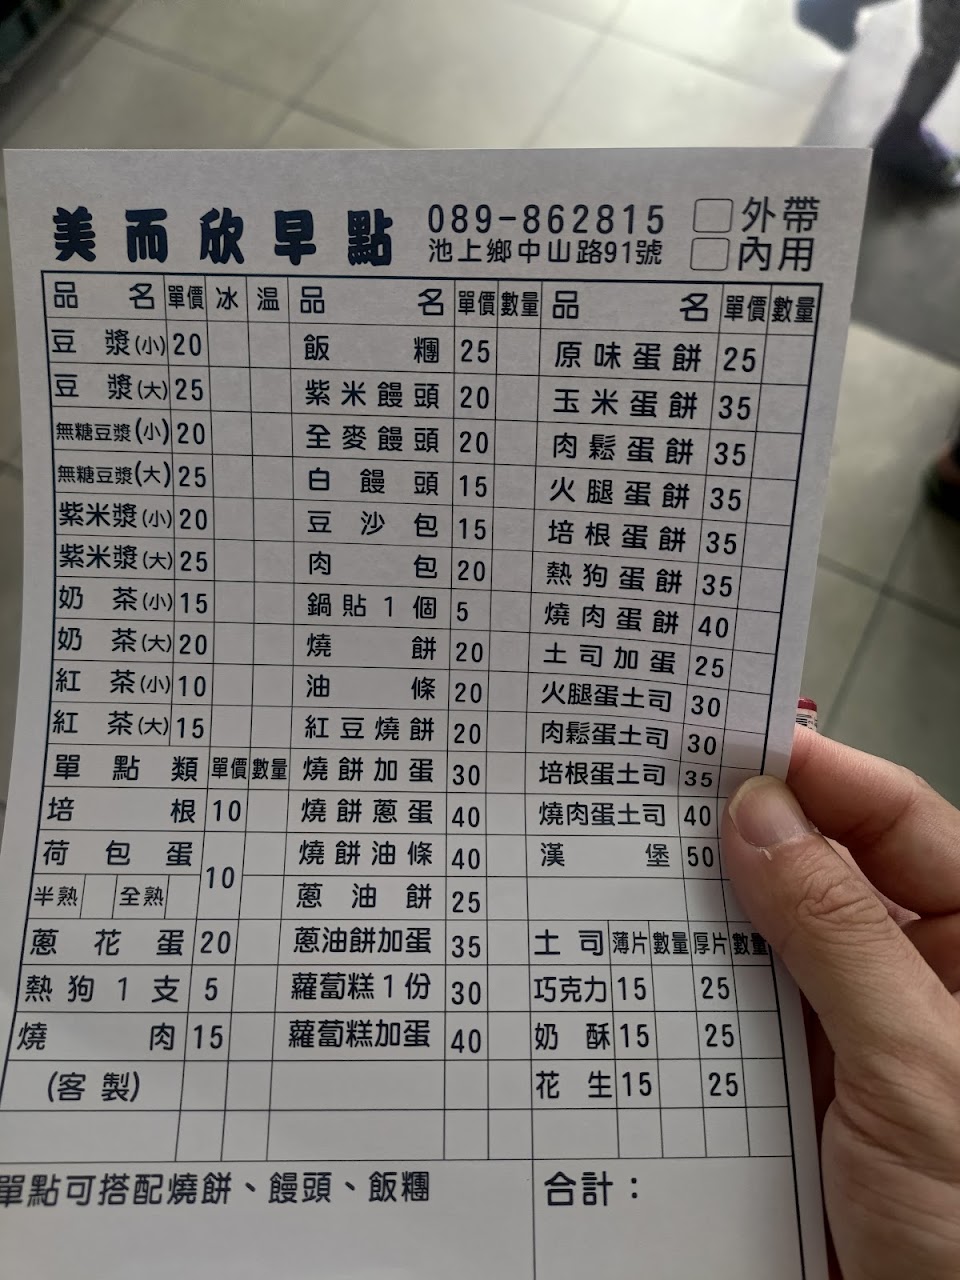 美而欣早點 089-862815 外帶
池上鄉中山路91號 內用
品名 單價 冰 温 品名 單價 數量 品名 單價 數量
豆漿(小) 20 飯糰 25 原味蛋餅 25
豆漿(大) 25 紫米饅頭 20 玉米蛋餅 35
無糖豆漿(小) 20 全麥饅頭 20 肉鬆蛋餅 35
無糖豆漿(大) 25 白饅頭 15 火腿蛋餅 35
紫米漿(小) 20 豆沙包 15 培根蛋餅 35
紫米漿(大) 25 肉包 20 熱狗蛋餅 35
奶茶(小) 15 鍋貼1個 5 燒肉蛋餅 40
奶茶(大) 20 燒餅 20 土司加蛋 25
紅茶(小) 10 油條 20 火腿蛋土司 30
紅茶(大) 15 紅豆燒餅 20 肉鬆蛋土司 30
單點類 單價 數量 燒餅加蛋 30 培根蛋土司 35
培根 10 燒餅蔥蛋 40 燒肉蛋土司 40
荷包蛋 10 燒餅油條 40 漢堡 50
半熟 全熟 蔥油餅 25
蔥花蛋 20 蔥油餅加蛋 35 土司 薄片 數量 厚片 數量
熱狗1支 5 蘿蔔糕1份 30 巧克力 15 25
燒肉 15 蘿蔔糕加蛋 40 奶酥 15 25
(客製) 花生 15 25
單點可搭配燒餅、饅頭、飯糰 合計：